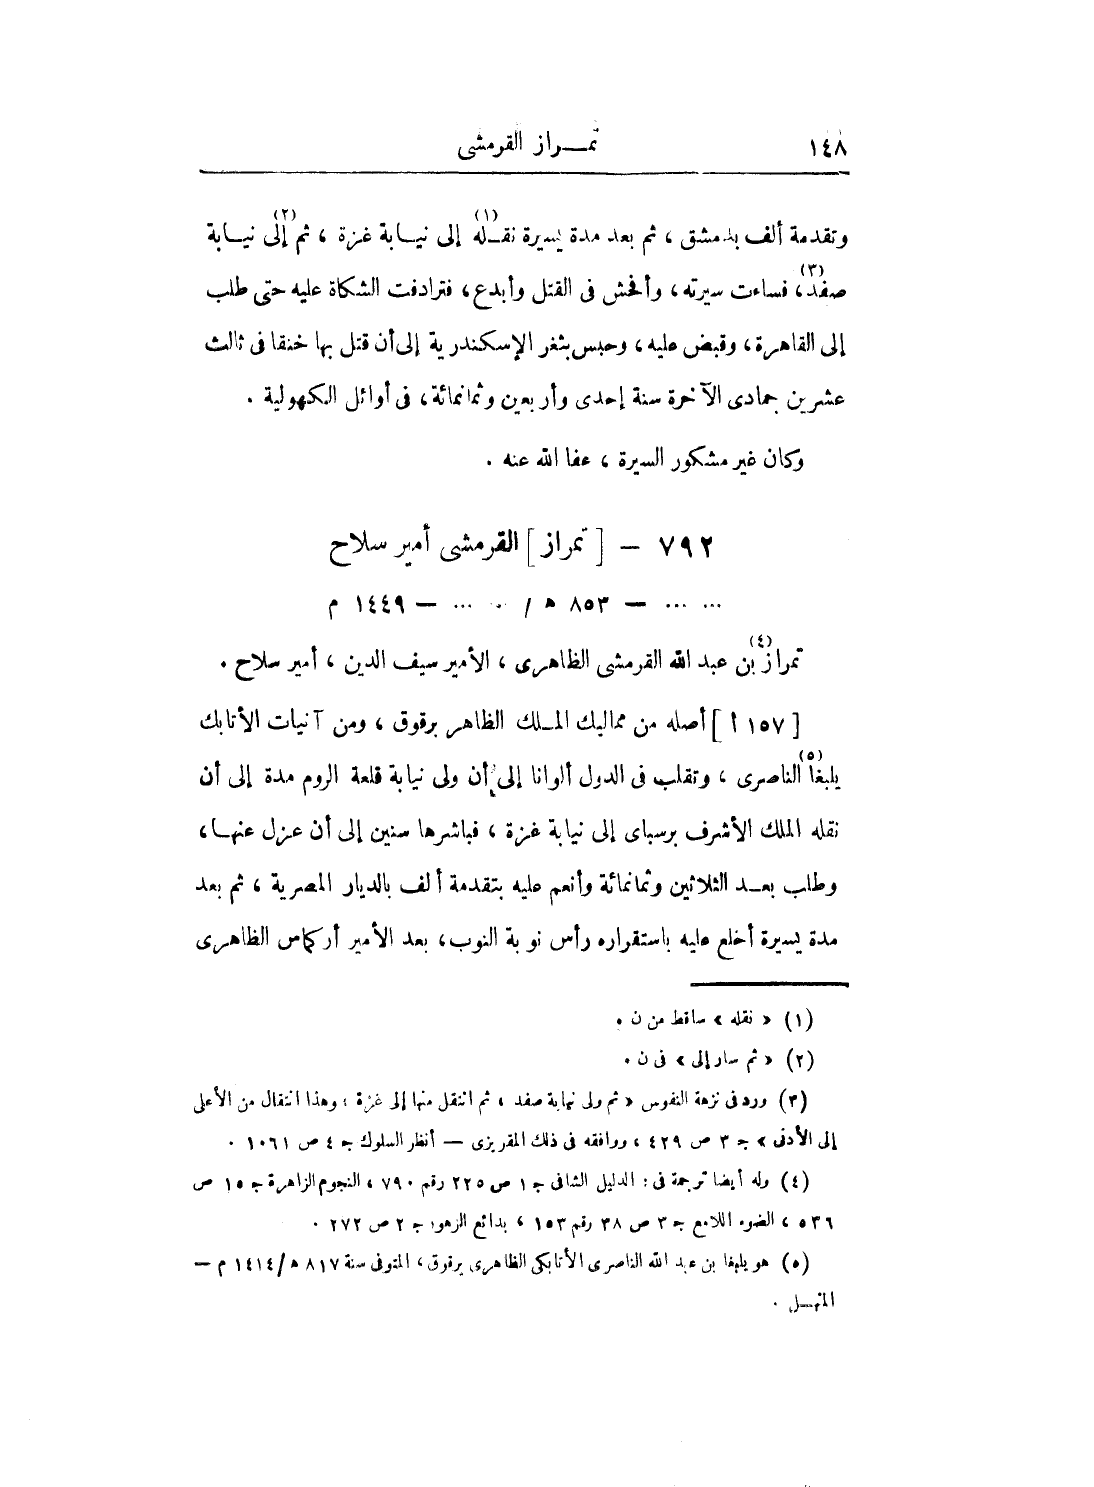 ١٤٨ تمـراز القرمشى
وتقدمة ألف بدمشق ، ثم بعد مدة يسيرة نقـله (١) إلى نيـابة غزة ، ثم إلى (٢) نيـابة
صفد (٣)، فساءت سيرته ، وأفحش فى القتل وأبدع ، فترادفت الشكاة عليه حتى طلب
إلى القاهرة ، وقبض عليه ، وحبس بثغر الإسكندرية إلى أن قتل بها خنقا فى ثالث
عشرين جمادى الآخرة سنة إحدى وأربعين وثمانمائة ، فى أوائل الكهولية .
وكان غير مشكور السيرة ، عفا الله عنه .
٧٩٢ – [ تمراز ] القرمشى أمير سلاح
... ... – ٨٥٣ ه / ... ... – ١٤٤٩ م
تمراز (٤) بن عبد الله القرمشى الظاهرى ، الأمير سيف الدين ، أمير سلاح .
[ ١٥٧ أ ] أصله من مماليك المـلك الظاهر برقوق ، ومن آنيات الأتابك
يلبغا (٥) الناصرى ، وتقلب فى الدول ألوانا إلى أن ولى نيابة قلعة الروم مدة إلى أن
نقله الملك الأشرف برسباى إلى نيابة غزة ، فباشرها سنين إلى أن عزل عنهـا ،
وطلب بعـد الثلاثين وثمانمائة وأنعم عليه بتقدمة ألف بالديار المصرية ، ثم بعد
مدة يسيرة أخلع عليه باستقراره رأس نوبة النوب ، بعد الأمير أركماس الظاهرى
(١) « نقله » ساقط من ن .
(٢) « ثم سار إلى » فى ن .
(٣) ورد فى نزهة النفوس « ثم ولى نيابة صفد ، ثم انتقل منها إلى غزة ، وهذا انتقال من الأعلى
إلى الأدنى » ج ٣ ص ٤٢٩ ، ووافقه فى ذلك المقريزى – أنظر السلوك ج ٤ ص ١٠٦١ .
(٤) وله أيضا ترجمة فى : الدليل الشافى ج ١ ص ٢٢٥ رقم ٧٩٠ ، النجوم الزاهرة ج ١٥ ص
٥٣٦ ، الضوء اللامع ج ٣ ص ٣٨ رقم ١٥٣ ، بدائع الزهور ج ٢ ص ٢٧٢ .
(٥) هو يلبغا بن عبد الله الناصرى الأتابكى الظاهرى برقوق ، المتوفى سنة ٨١٧ ه/ ١٤١٤ م –
المنهـل .